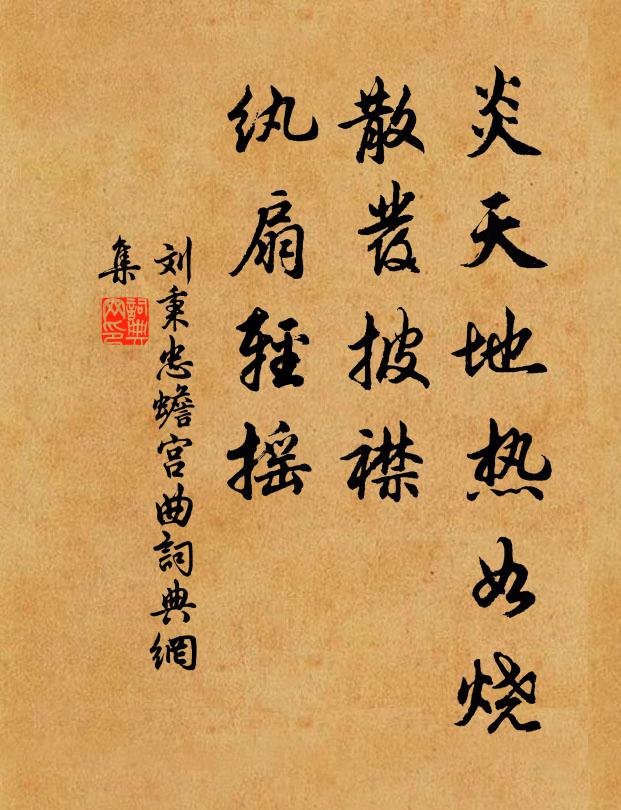 炎天地热如烧
散發披襟
纨扇輕摇
刘秉忠蟾宫曲詞典網
集
詞典网印